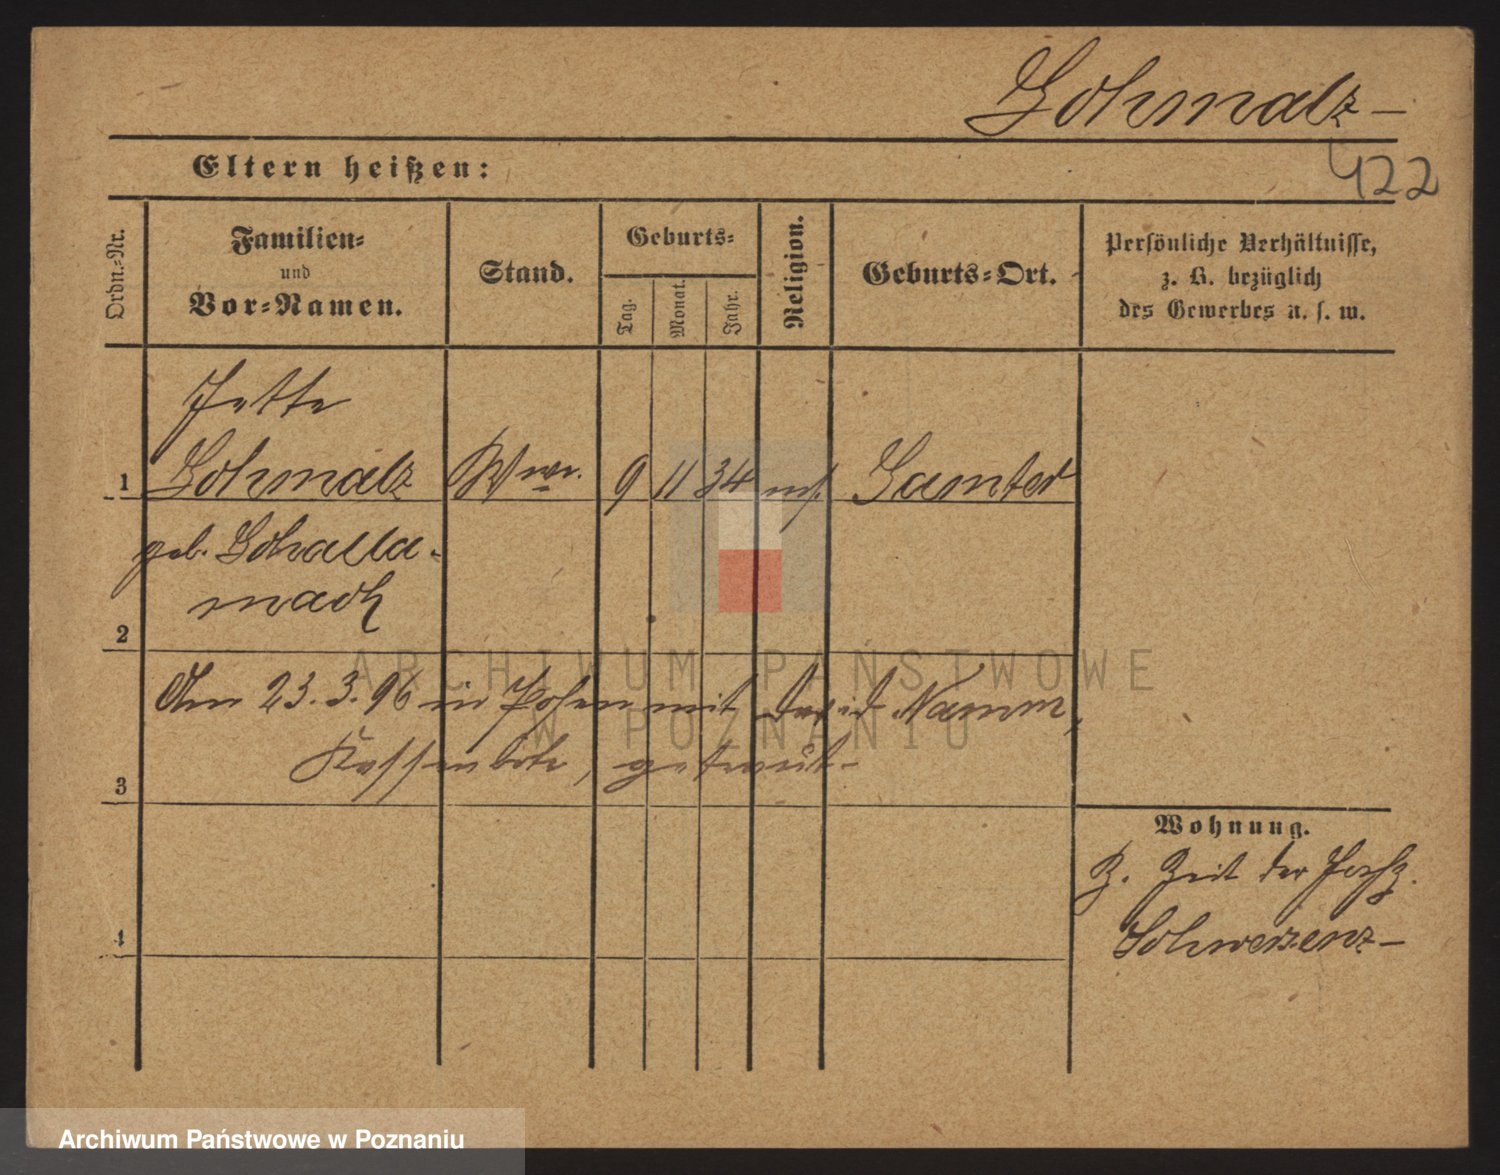 Schmalz
422
Eltern heißen:
Ordn.-Nr.
Familien-
und
Vor-Namen.
Stand.
Geburts-
Tag.
Monat.
Jahr.
Religion.
Geburts-Ort.
Persönliche Verhältnisse,
z. B. bezüglich
des Gewerbes u. s. w.
Jette
1 Schmalz Wwe. 9 11 34 mos. Samter
geb. Schalla-
mach
2
Am 23.3.96 in Posen mit David Namm,
Kassenbote, getraut.
3
Wohnung.
Z. Zeit der
Schwersenz
4
ARCHIWUM PAŃSTWOWE
W POZNANIU
Archiwum Państwowe w Poznaniu